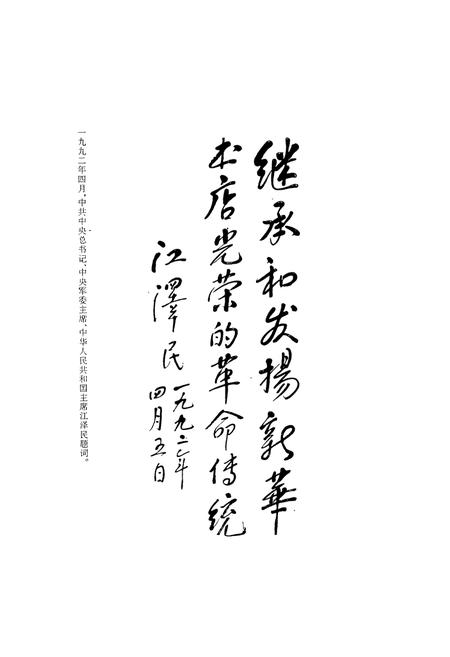 继承和发揚新華
书店光荣的革命傳统
江澤民
一九九二年
四月五日
一九九二年四月，中共中央总书记、中央军委主席、中华人民共和国主席江泽民题词。